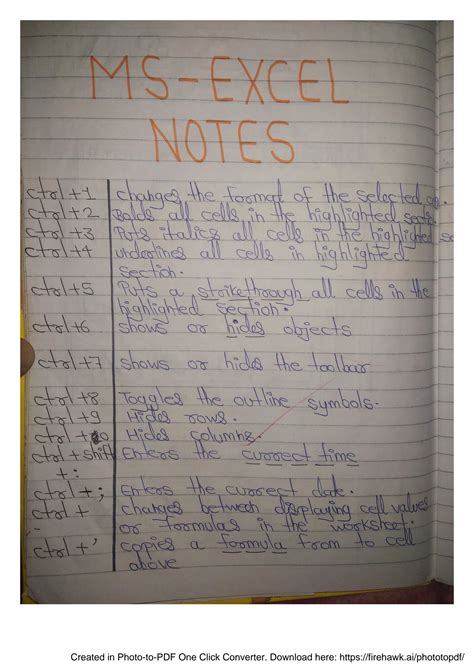 MS-EXCEL
NOTES
ctrl+1 changes the format of the selected
ctrl+2 Bolds all cells in the highlighted
ctrl+3 Puts italics all cells in the highlighted
ctrl+4 underlines all cells in highlighted
section.
ctrl+5 Puts a strikethrough all cells in the
highlighted section.
ctrl+6 shows or hides objects
ctrl+7 shows or hides the toolbar
ctrl+8 Toggles the outline symbols.
ctrl+9 Hides rows.
ctrl + Hides columns.
ctrl + shift Enters the current time
+:
ctrl+; Enters the current date.
ctrl + changes between displaying cell values
or formulas in the worksheet.
ctrl+' copies a formula from to cell
above
Created in Photo-to-PDF One Click Converter. Download here: https://firehawk.ai/phototopdf/